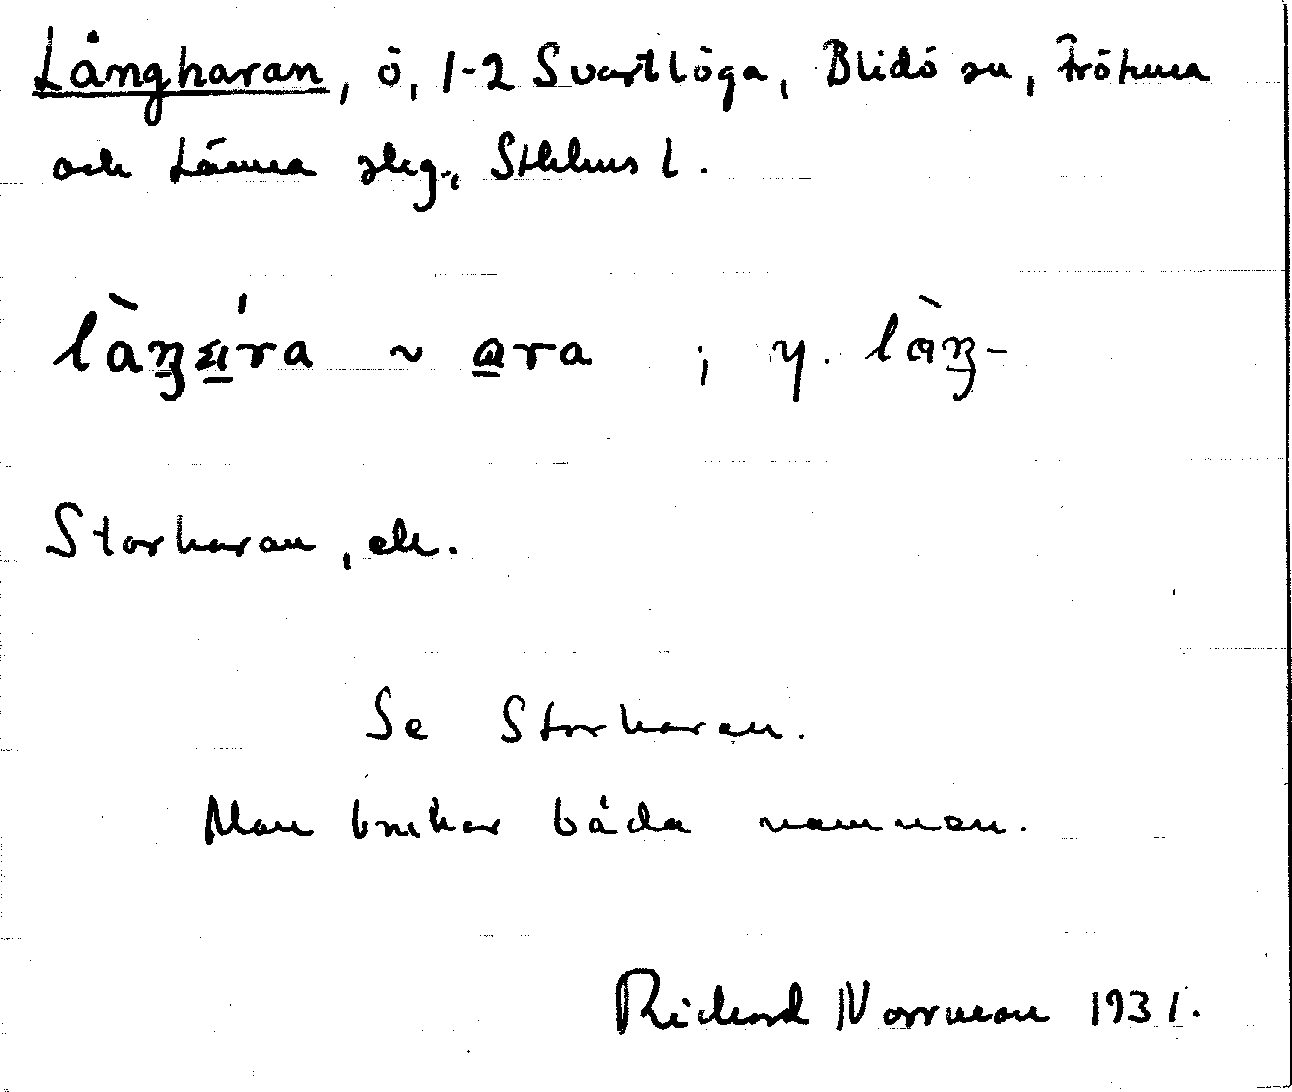 Långharan, ö, 1-2 Svartlöga, Blidö sn, Frötuna
och Länna slg., Sthlms l.
làŋára ~ ara ; y. làŋ-
Storharan, ek.
Se Storharan.
Man brukar båda namnen.
Rickard Norrman 1931.